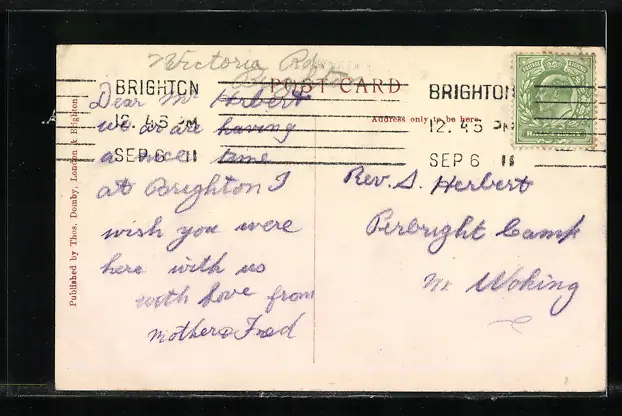 Victoria Rd
Brighton
POST CARD
BRIGHTON
12.45 PM
SEP 6 11
BRIGHTON
12.45 PM
SEP 6 11
Address only to be here.
Published by Thos. Domby, London & Brighton.
Dear Mr Herbert
we are having
a nice time
at Brighton I
wish you were
here with us
with love from
mother & Fred
Rev. S. Herbert
Perbright Camp
Nr Woking